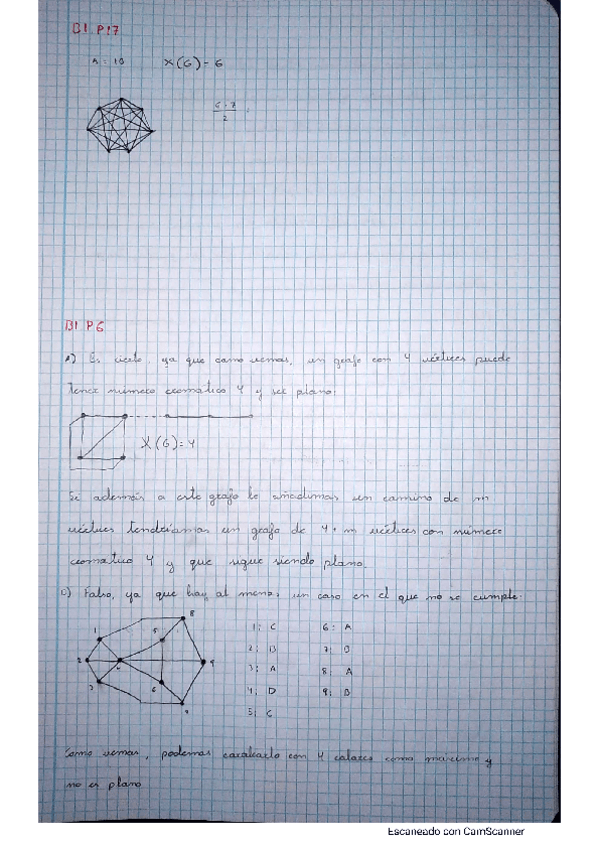 B1 P17
n = 10 X(G) = 6
6·7
2
B1 P6
a) Es cierto, ya que como vemos, un grafo con 4 vértices puede
tener número cromatico 4 y ser plano:
X(G)=4
Si además a este grafo le añadimos un camino de m
vértices tendríamos un grafo de 4+m vértices con número
cromatico 4 y que sigue siendo plano.
Falso, ya que hay al menos un caso en el que no se cumple:
1 5 8
2 9
3 6
1: C 6: A
2: B
3: A 8: A
4: D 9: B
5: C
Como vemos, podemos colorearlo con 4 colores como máximo y
no es plano
Escaneado con CamScanner